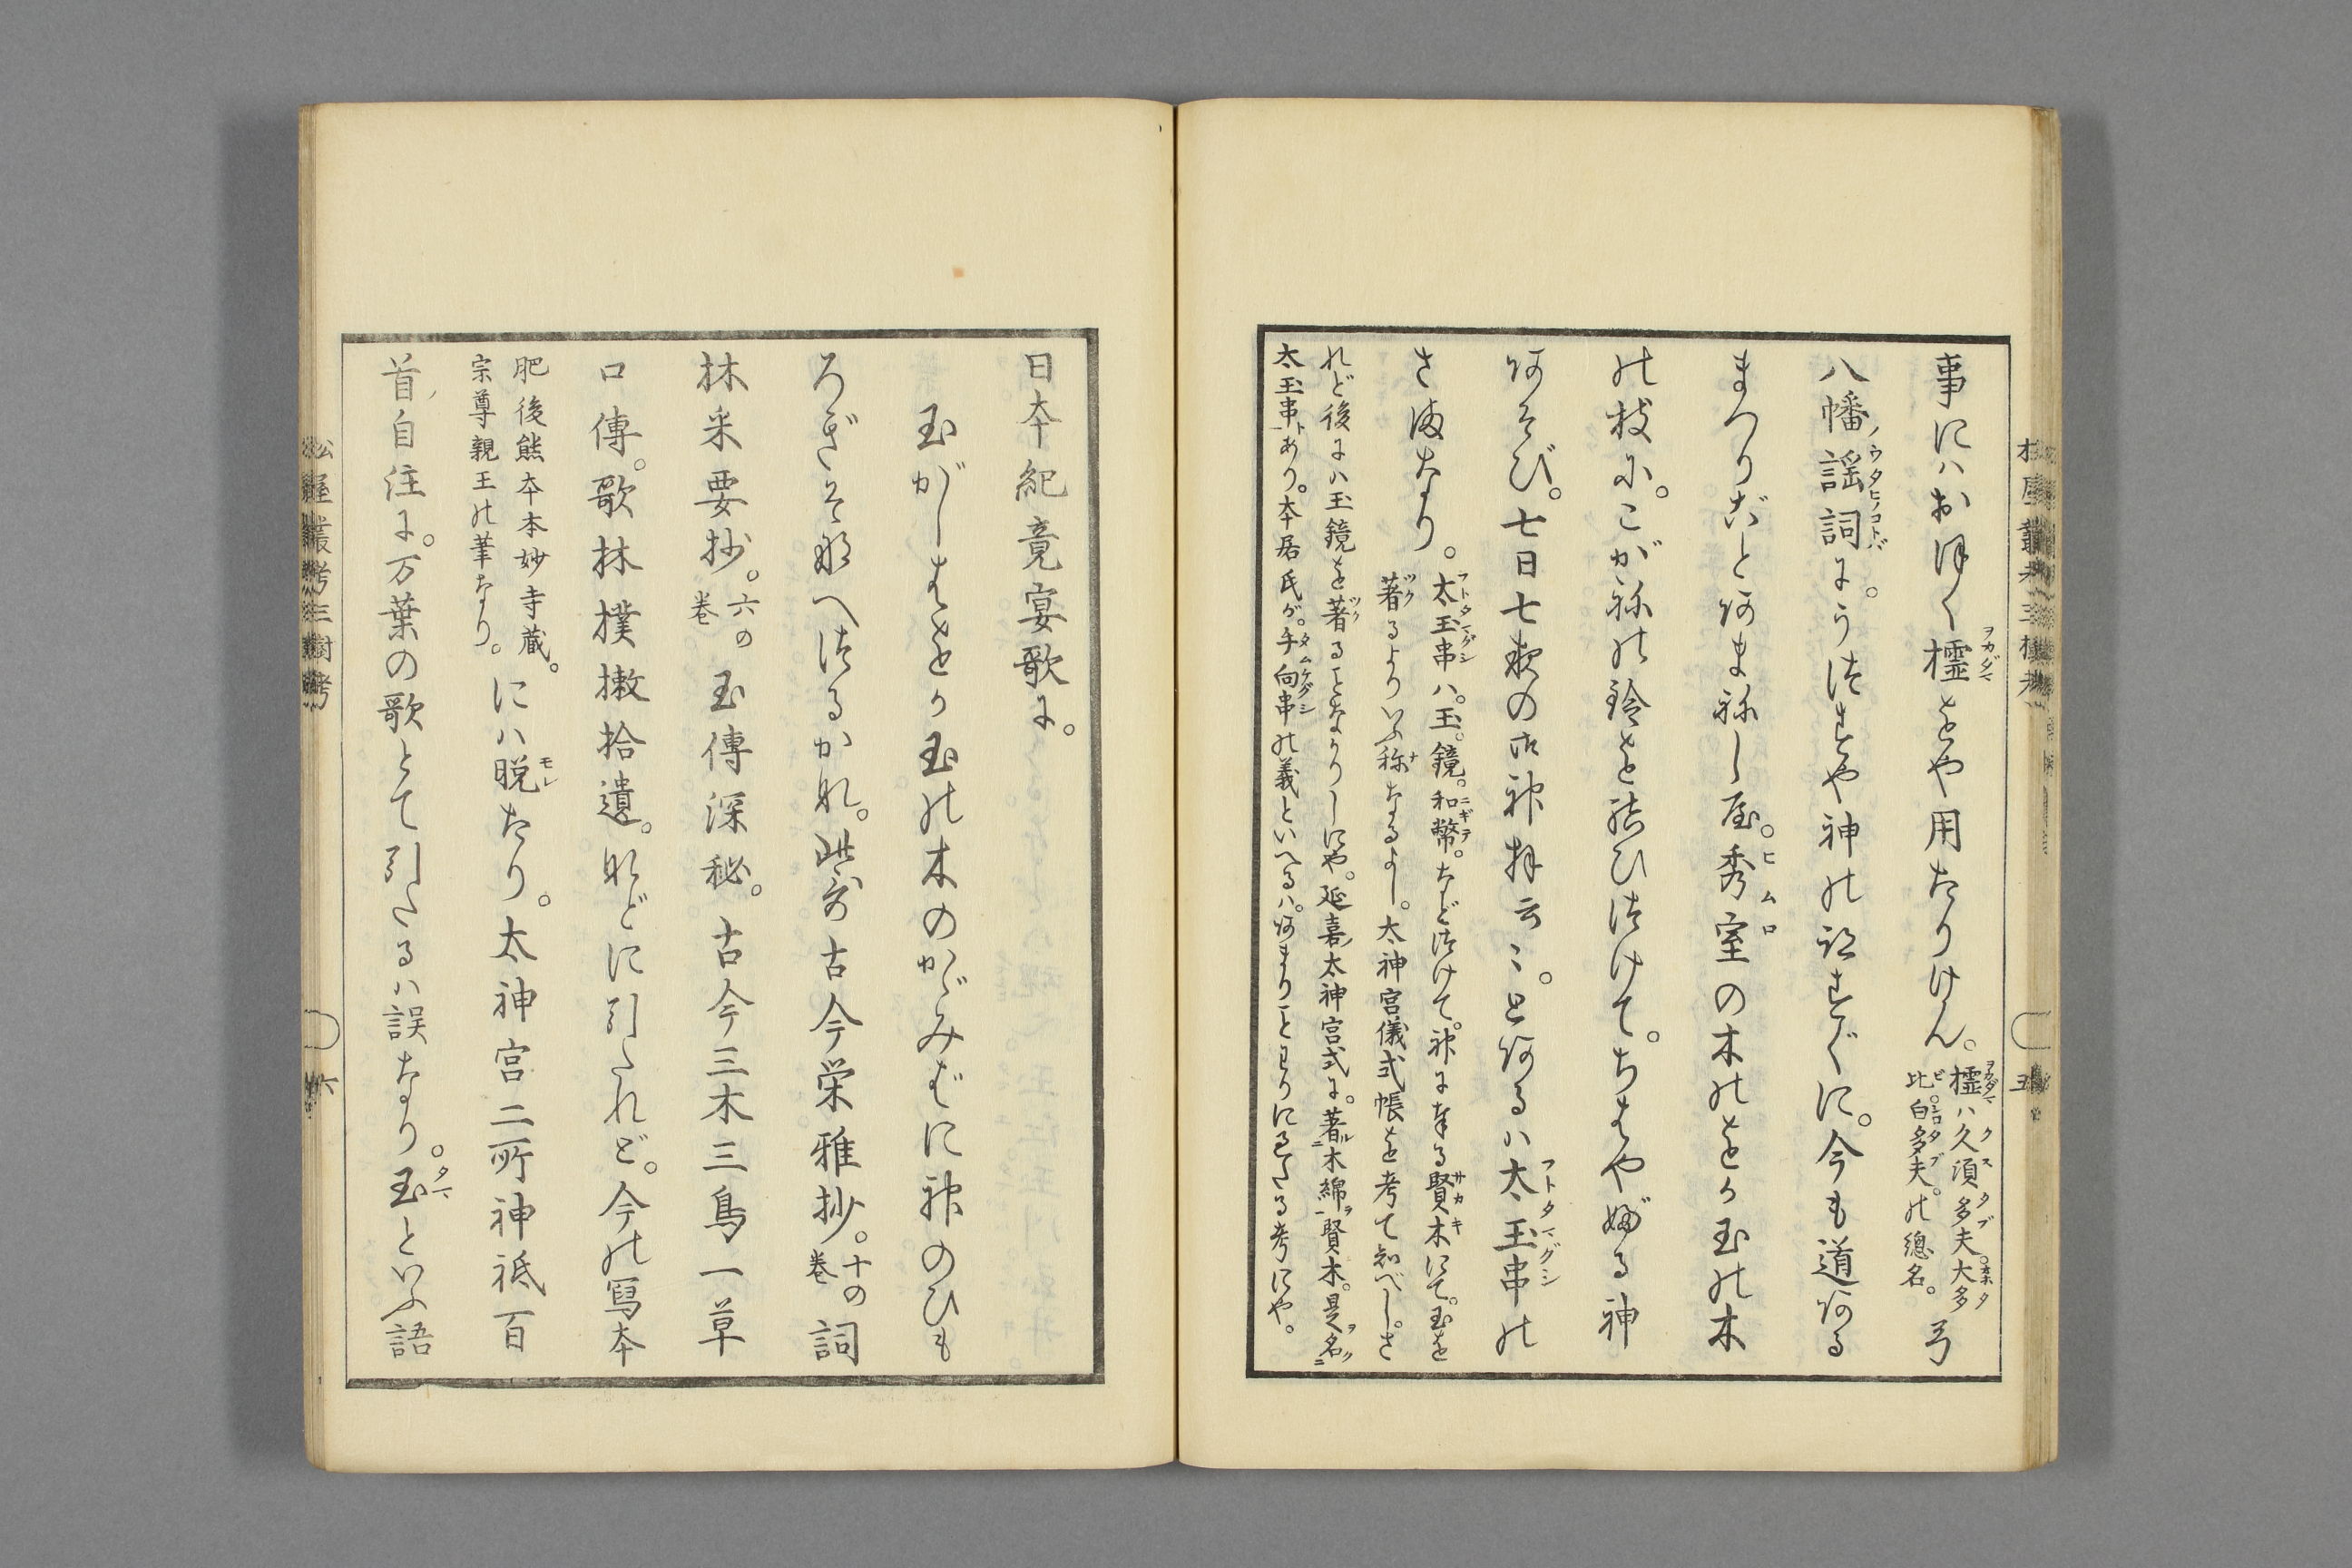 事にハおほく櫺をや用たりけん。櫺ハ久須多夫。大多
比。白多夫。の總名。弓
八幡謡詞に。うつすや神の跡すぐに。今も道ある
まつりごとあまねし屋。秀室の木のをか玉の木
の枝に。こがねの鈴を結ひつけて。ちはやぶる神
あそび。七日七夜の御神拝云々。とあるハ太玉串の
さまなり。
太玉串ハ。玉。鏡。和幣。などつけて。神に奉る賢木にて。玉を
著るよりいふ称なるよし。太神宮儀式帳を考て知べし。さ
れど後にハ玉鏡を著ることなかりしにや。延喜太神宮式に。著木綿賢木。是名
太玉串トあり。本居氏が。手向串の義といへるハ。あまりことわりにるたる考にや。
日本紀竟宴歌に。
玉がしはをか玉の木のかゞみばに神のひも
ろぎそなへつるかな。此哥古今栄雅抄。十の巻 詞
林采要抄。六の巻 玉傳深秘。古今三木三鳥一草
口傳。歌林樸樕拾遺。などに引たれど。今の寫本
肥後熊本本妙寺蔵。
宗尊親王の筆なり。にハ脱たり。太神宮二所神祇百
首自注に。万葉の歌とて引たるハ誤なり。玉といふ語
松屋叢考三樹考 六